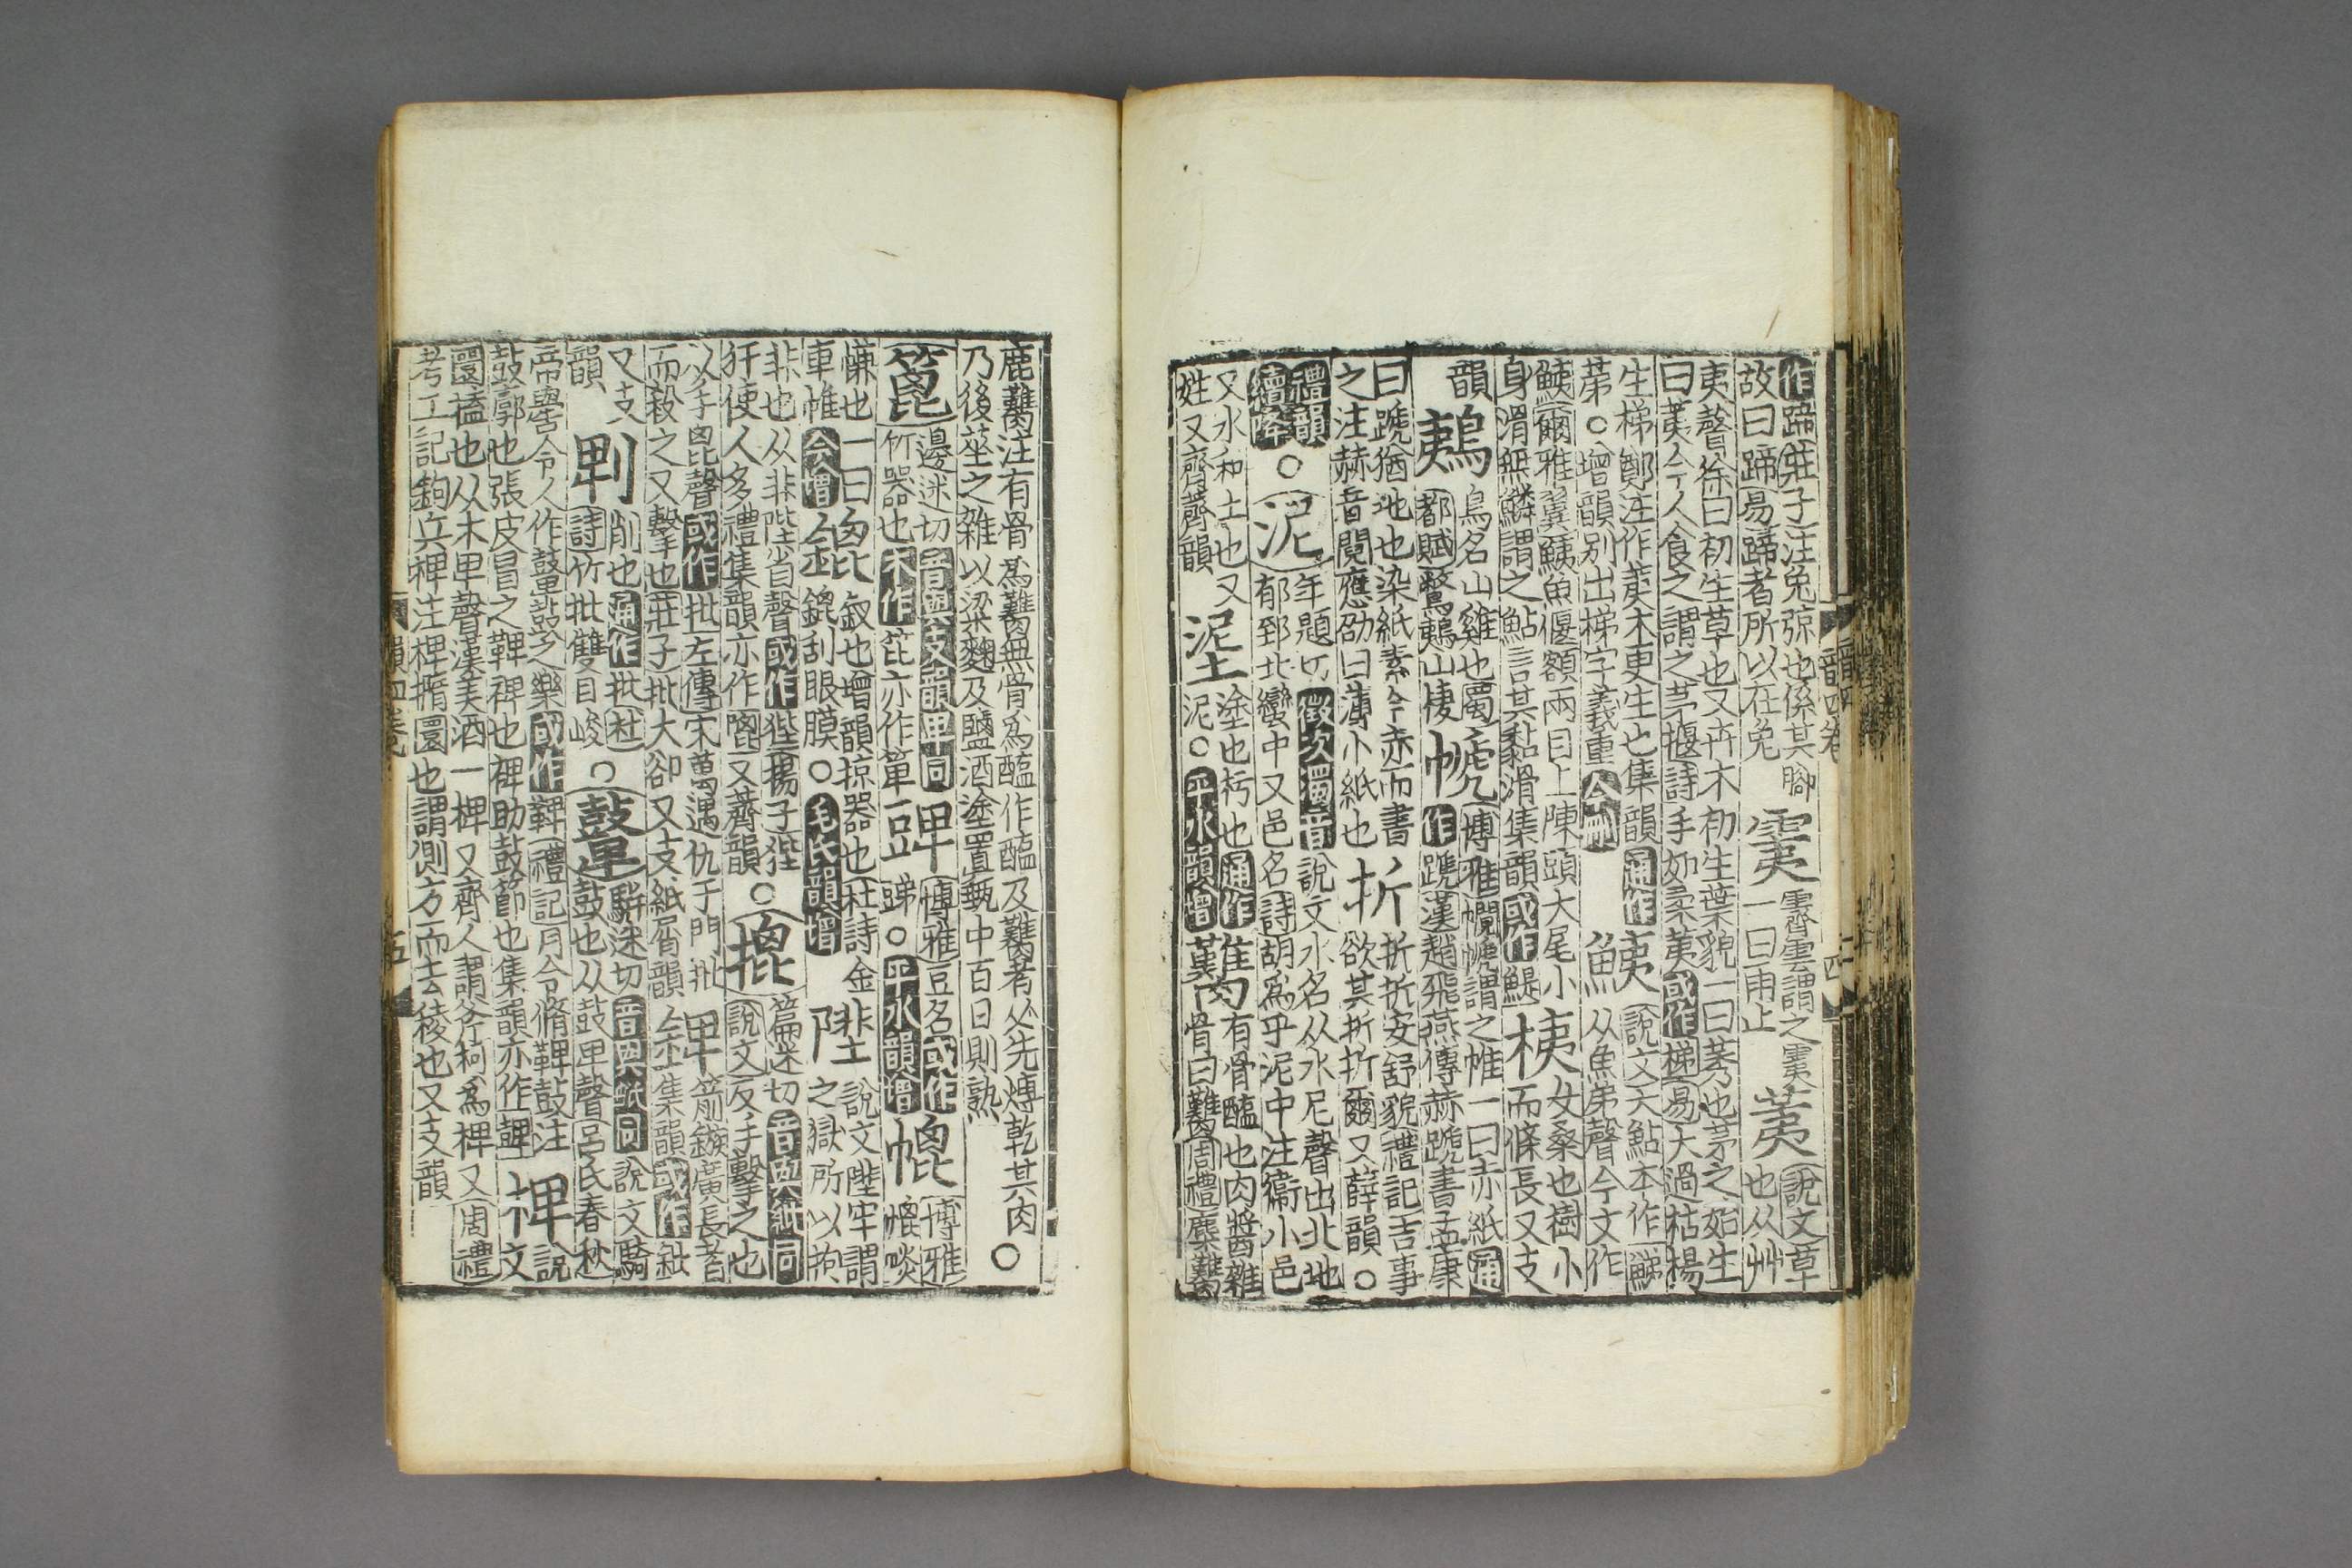 作蹄莊子注兔弶也係其腳
故曰蹄易蹄者所以在兔
䨑
霽雲謂之䨑
一曰雨止
荑
說文草
也从艸
夷聲徐曰初生草也又卉木初生葉貌一曰荑秀也茅之始生
曰荑今人食之謂之茅揠詩手如柔荑或作梯易大過枯楊
生梯鄭注作荑木更生也集韻通作
苐○增韻别出梯字義重今刪
鮧
說文大鮎本作鮷
从魚弟聲今文作
鮧爾雅翼鮧魚偃額兩目上陳頭大尾小
身滑無鱗謂之鮎言其黏滑集韻或作鯷
桋
女桑也樹小
而條長又支
韻
鶇
鳥名山雞也蜀
都賦鷩鶇山棲
博雅謂之帷一曰赤紙通
作蹏漢趙飛燕傳赫蹏書孟康
曰蹏猶地也染紙素令赤而書
之注赫音鬩應劭曰薄小紙也
折
折折安舒貌禮記吉事
欲其折折爾又薛韻○
禮韻
續降
○泥
年題切徵次濁音說文水名从水尼聲出北地
郁郅北蠻中又邑名詩胡爲乎泥中注衞小邑
又水和土也又
姓又齊薺韻
埿
塗也杇也通作
泥○平水韻增
臡
有骨醢也肉醬雜
骨曰臡周禮麋臡
韻四卷
十四
鹿臡注有骨爲臡無骨爲醢作醢及臡者必先膊乾其肉○
乃後莝之雜以粱麴及鹽酒塗置甀中百日則熟
箆
邊迷切音與支韻卑同
竹器也本作笓亦作箄
豍
博雅豆名或作
○平水韻增
㡙
博雅
㡙㡘
㡘也一曰
車帷今增
鎞
釵也增韻掠器也杜詩金
鎞刮眼膜○毛氏韻增
說文陛牢謂
之獄所以拘
非也从非陛省聲或作狴揚子狴
犴使人多禮集韻亦作又薺韻
○㨽
篇迷切音與紕同
說文反手擊之也
以手𣬉聲或作批左傳宋萬遇仇于門批
而殺之又擊也莊子批大卻又支紙屑韻
錍
箭鏃廣長者
集韻或作鈚
又支
韻
削也通作批杜
詩竹批雙耳峻
○鼙
駢迷切音與紕同說文騎
鼓也从鼓卑聲呂氏春秋
帝嚳令人作鼙鼓之樂或作鞞禮記月令脩鞞鼓注
鼓郭也張皮冒之鞞裨也裨助鼓節也集韻亦作
椑
說
文
圜榼也从木卑聲漢美酒一椑又齊人謂斧柯爲椑又周禮
考工記鉤兵椑注椑撱圜也謂側方而去棱也又支韻